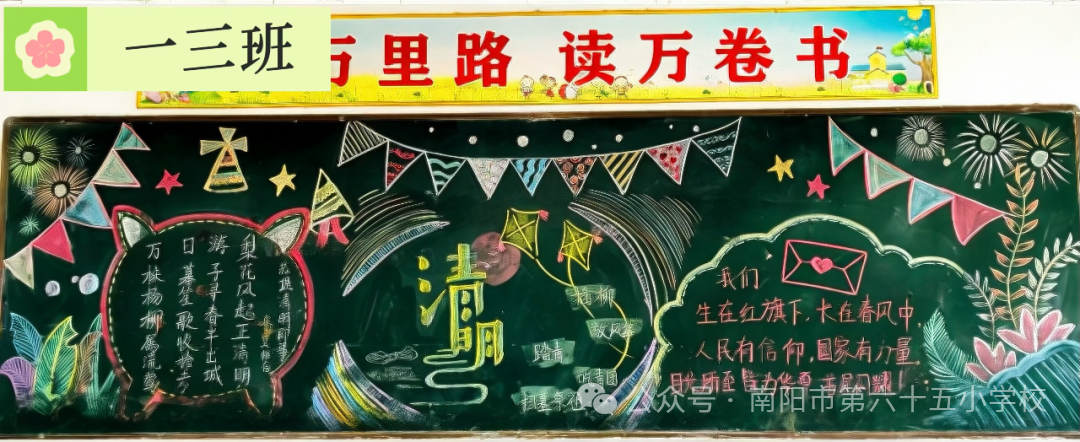 一三班
万里路 读万卷书
梨花风起正清明
游子寻春半出城
日暮笙歌收拾去
万株杨柳属流莺
清明
插柳
放风筝
踏青
我们
生在红旗下,长在春风中,
人民有信仰,国家有力量,
目光所至皆为华夏
公众号·南阳市第六十五小学校